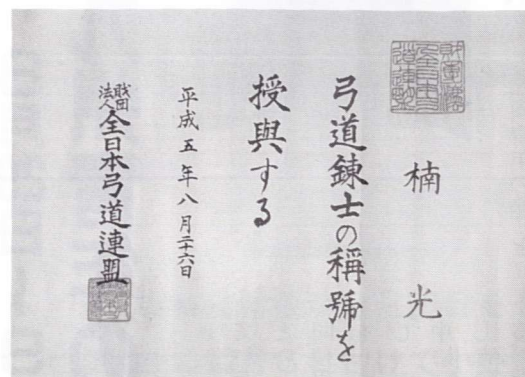 楠 光
弓道錬士の稱號を
授與する
平成五年八月二十六日
財団法人 全日本弓道連盟